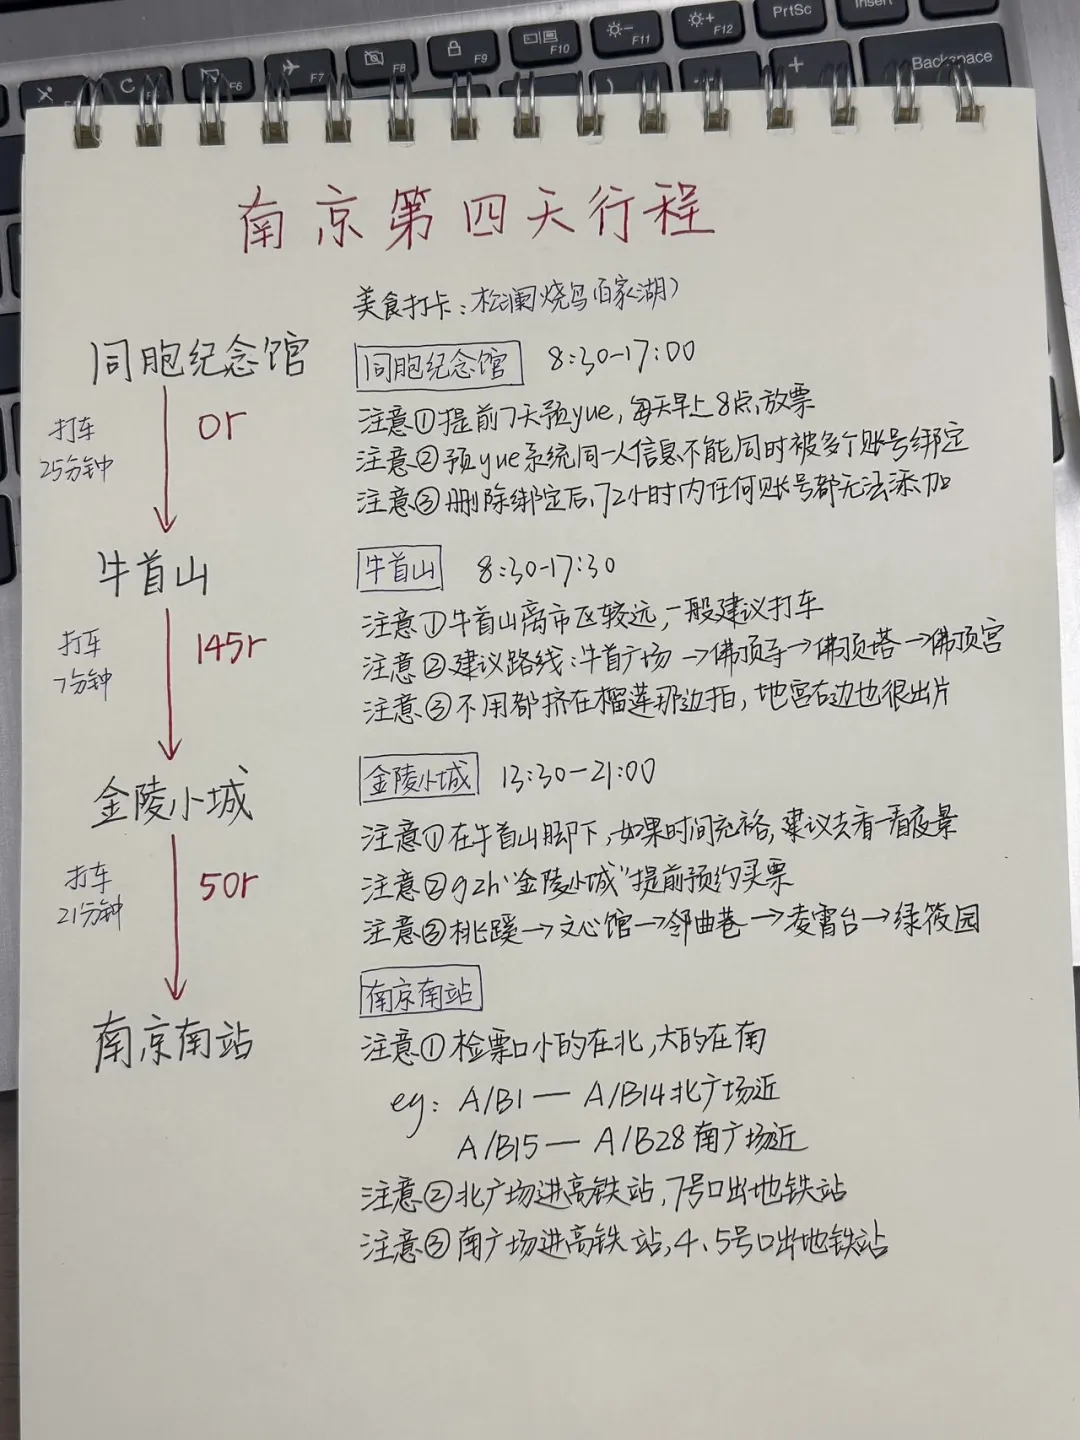 F6
F7
F8
F9
F10
F11
F12
PrtSc
Insert
Backspace
南京第四天行程
美食打卡：松澜烧鸟(百家湖)
同胞纪念馆
打车
25分钟
0r
牛首山
打车
7分钟
145r
金陵小城
打车
21分钟
50r
南京南站
同胞纪念馆 8:30-17:00
注意①提前7天预yue，每天早上8点放票
注意②预yue系统同一人信息不能同时被多个账号绑定
注意③删除绑定后，72小时内任何账号都无法添加
牛首山 8:30-17:30
注意①牛首山离市区较远，一般建议打车
注意②建议路线：牛首广场→佛顶寺→佛顶塔→佛顶宫
注意③不用都挤在榴莲那边拍，地宫右边也很出片
金陵小城 13:30-21:00
注意①在牛首山脚下，如果时间充裕，建议去看一看夜景
注意②gzh“金陵小城”提前预约买票
注意③桃蹊→文心馆→邻曲巷→凌霄台→绿筱园
南京南站
注意①检票口小的在北，大的在南
eg：A/B1— A/B14北广场近
A/B15— A/B28南广场近
注意②北广场进高铁站，7号口出地铁站
注意③南广场进高铁站，4、5号口出地铁站